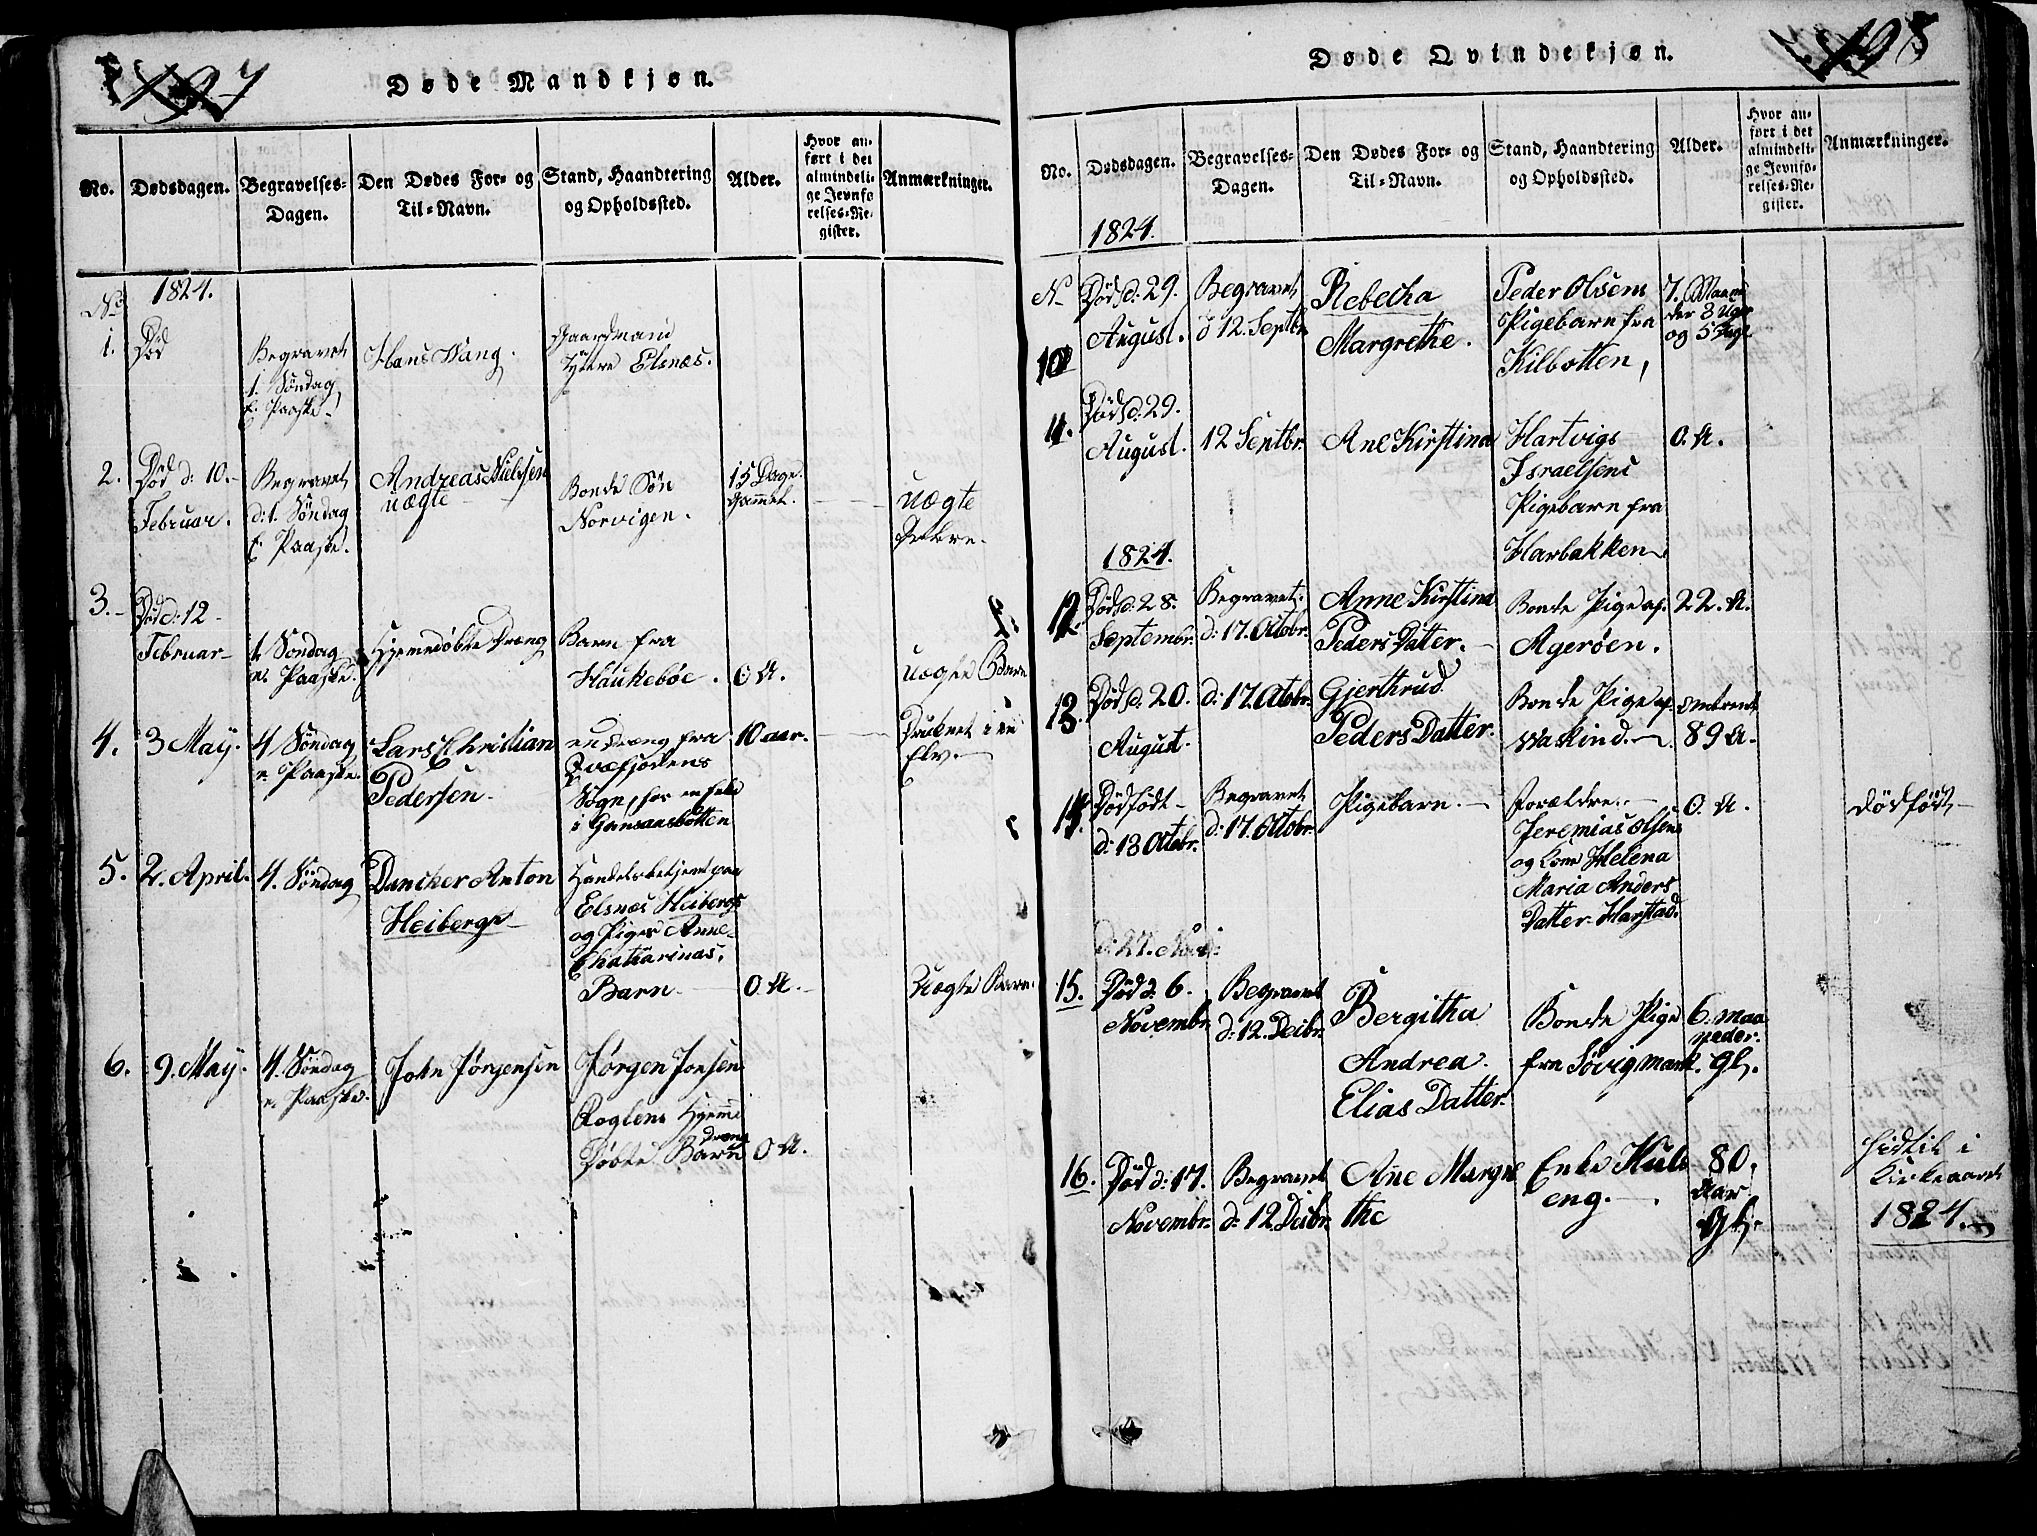 197
Døde Mandkjøn.
No.
Dødsdagen.
Begravelses-
Dagen.
Den Dødes For- og
Til-Navn.
Stand, Haandtering
og Opholdssted.
Alder.
Hvor an-
ført i det
almindeli-
ge Jevnfø
relses-Re-
gister.
Anmærkninger.
1824.
No
1.
Død
Begravet
1. Søndag
E. Paaske.
Hans Wang.
Gaardmand
Yttere Elsnæs.
2.
Død d: 10.
Februar.
Begravet
d: 1. Søndag
E. Paaske.
Andreas Nielsen
uægte
Bonde Søn
Norvigen.
15 Dage.
Gammel.
uægte
3.
Død d: 12
Februar
1. Søndag
e. Paaske.
Hjemedøbte Dreng
Barn fra
Haukebøe.
0 A.
uægte Barn
4.
3 May.
4 Søndag
e. Paaske.
Lars Christian
Pedersen
en Dreng fra
Qvæfjordens
Sogn,
i Gansaasbotten
10 aar.
Druknet i en
Elv.
5.
2. April.
4. Søndag
Dancker Anton
Heiberg
Handelsbetjent paa
Elsnæs Heibergs
og Piges Anne
Chatharinas,
Barn
0 A.
Uægte Barn.
6.
9. May.
4. Søndag
e. Paaske.
John Jørgensen
Jørgen Jonsen
Roglens Hjemme
Døbte Dreng Barn
0 A.
198
Døde Qvindekjøn.
No.
Dødsdagen.
Begravelses-
Dagen.
Den Dødes For- og
Til-Navn.
Stand, Haandtering
og Opholdssted.
Alder.
Hvor an-
ført i det
almindeli-
ge Jevnfø-
relses-Re-
gister.
Anmærkninger.
1824.
N
10
Død d: 29.
August.
Begravet
d 12. Sentbr.
Rebecha
Margrethe.
Peder Olsens
Pigebarn fra
Kilbotten,
7. Maane
der 3 Uger
og 5 Dage
11.
Død d: 29.
August.
12 Sentbr.
Ane Kirstina
Hartvigs
Israelsens
Pigebarn fra
Harbakken
0. A.
1824.
12.
Død d: 28.
Septembr.
Begravet.
d: 17. Octobr.
Anne Kirstina
Peders Datter.
Bonde Pige af
Agerøen.
22. A.
13.
Død d: 20.
August.
d: 17. Octobr.
Gjerthrud
Peders Datter.
Bonde Pige af
Waskind.
omtrent
89 A.
14.
Dødfødt
d: 13 Octobr.
Begravet
d: 17. Octobr.
Pigebarn.
Forældre.
Jeremias Olsen
og Kone Helena
Maria Anders
Datter Harstad.
0. A.
Dødfødt
15.
Død d: 6.
Novembr.
Begravet
d: 12. Decbr.
Bergitha
Andrea.
Elias Datter.
Bonde Pige
fra Sørvigmark.
6. maa
neder.
Gl.
16.
Død d: 17.
Novembr.
Begravet
d: 12. Decbr.
Ane Margre
the
Enke Kuls
eng.
80.
Aar
Gl.
Hidtil i
Kirkeaaret
1824.